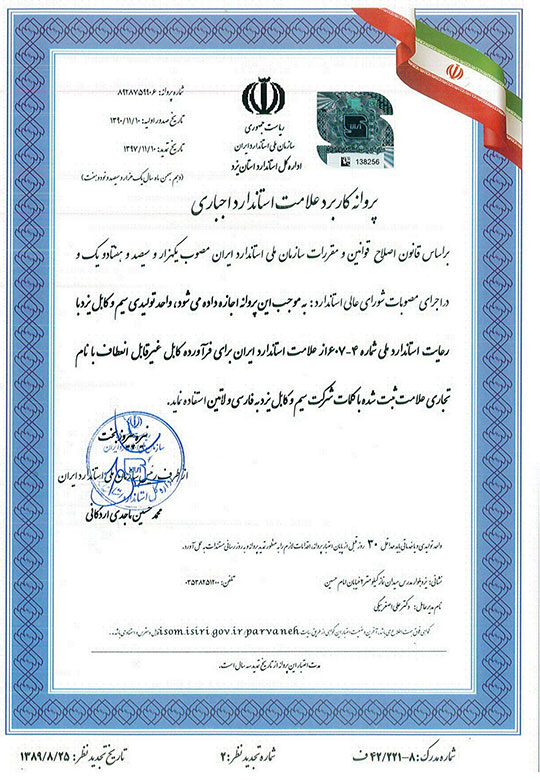 شماره پروانه: ۸۹۲۸۷۵۹۹۰۶
تاریخ صدور اولیه: ۱۳۹۰/۱۱/۱۰
تاریخ تمدید: ۱۳۹۷/۱۱/۱۰
(دهم بهمن ماه سال یک هزار و سیصد و نود و هفت)
ریاست جمهوری
سازمان ملی استاندارد ایران
اداره کل استاندارد استان یزد
138256
پروانه کاربرد علامت استاندارد اجباری
براساس قانون اصلاح قوانین و مقررات سازمان ملی استاندارد ایران مصوب یکهزار و سیصد و هفتاد و یک و
در اجرای مصوبات شورای عالی استاندارد: به موجب این پروانه اجازه داده می شود، واحد تولیدی سیم و کابل یزد با
رعایت استاندارد ملی شماره ۴-۶۰۷ از علامت استاندارد ایران برای فرآورده کابل غیرقابل انعطاف با نام
تجاری علامت ثبت شده با کلمات شرکت سیم و کابل یزد به فارسی و لاتین استفاده نماید.
از طرف رئیس سازمان ملی استاندارد ایران
محمد حسین ماجدی اردکانی
واحد تولیدی و یا خدماتی باید حداقل ۳۰ روز قبل از پایان اعتبار پروانه، اقدامات لازم را به منظور تمدید پروانه و به روز رسانی مستندات به عمل آورد.
نشانی: یزد بلوار مدرس میدان نماز کیلومتر ۹ خیابان امام حسین
تلفن:
نام مدیرعامل: دکتر علی اصغر بیکی
isom.isiri.gov.ir/parvaneh
مدت اعتبار این پروانه از تاریخ تمدید سه سال است.
شماره مدرک: ۸-۴۲/۲۲۱ ف
شماره تجدید نظر: ۲
تاریخ تجدید نظر: ۱۳۸۹/۸/۲۵